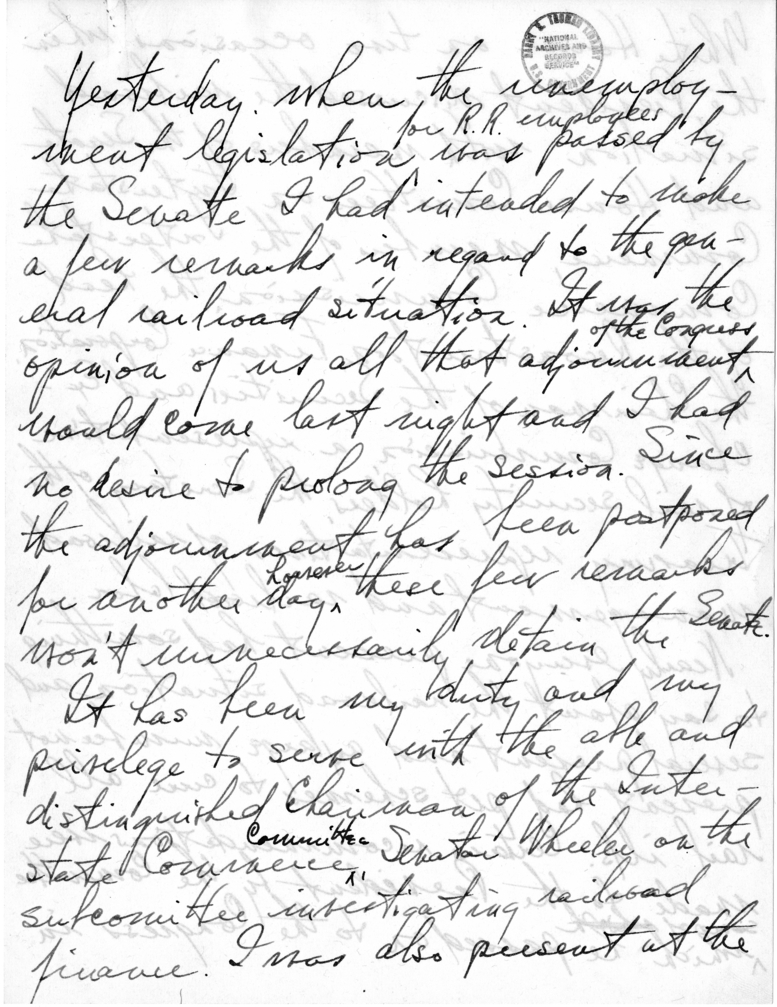 HARRY S. TRUMAN LIBRARY
"NATIONAL
ARCHIVES AND
RECORDS
SERVICE"
U.S. GOVERNMENT
Yesterday when the unemploy-
for R.R. employees
ment legislation ^ was passed by
the Senate I had intended to make
a few remarks in regard to the gen-
eral railroad situation. It was the
of the Congress
opinion of us all that adjournment ^
would come last night and I had
no desire to prolong the session. Since
the adjournment has been postponed
however
for another day ^ these few remarks
won't unnecessarily detain the Senate.
It has been my duty and my
privilege to serve with the able and
distinguished Chairman of the Inter-
Committee
state Commerce ^, Senator Wheeler on the
subcomittee investigating railroad
finance. I was also present at the